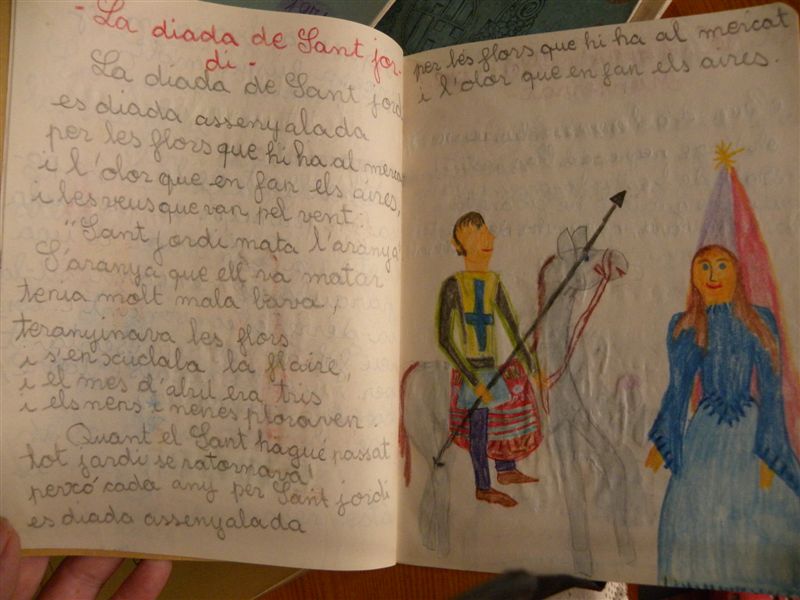 - La diada de Sant jor-
di -
La diada de Sant jordi
es diada assenyalada
per les flors que hi ha al mercat
i l'olor que en fan els aires,
i les veus que van pel vent:
"Sant jordi mata l'aranya"
L'aranya que ell va matar
tenia molt mala bava,
teranyinava les flors
i s'en xuclala la flaire,
i el mes d'abril era tris
i els nens i nenes ploraven.
Quant el Sant hagué passat
tot jardi se ratornava!
perxó cada any per Sant jordi
es diada assenyalada
per les flors que hi ha al mercat
i l'olor que en fan els aires.